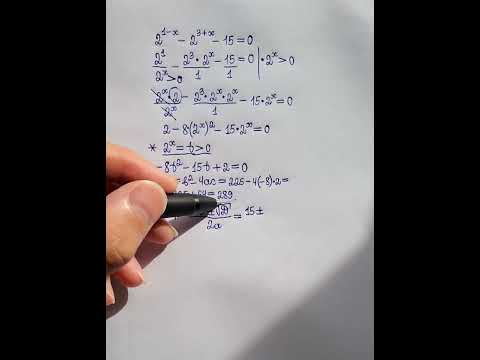 2^{1-x} - 2^{3+x} - 15 = 0
2^1/2^x - 2^3 · 2^x/1 - 15/1 = 0 | · 2^x > 0
2^x > 0
2^x · 2/2^x - 2^3 · 2^x · 2^x/1 - 15 · 2^x = 0
2 - 8(2^x)^2 - 15 · 2^x = 0
* 2^x = t > 0
-8t^2 - 15t + 2 = 0
= b^2 - 4ac = 225 - 4(-8) · 2 =
= 289
2a = 15 ±